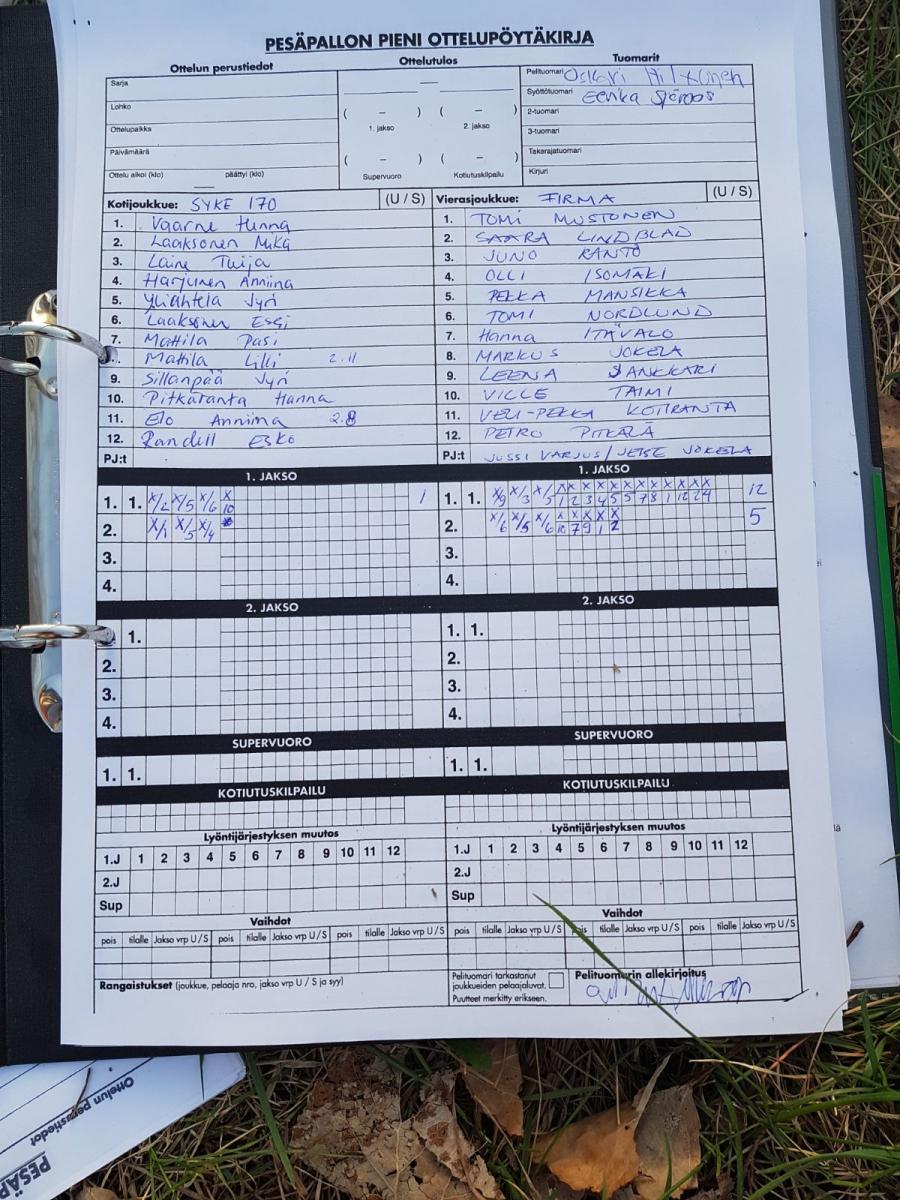 PESÄPALLON PIENI OTTELUPÖYTÄKIRJA
Ottelun perustiedot
Sarja
Lohko
Ottelupaikka
Päivämäärä
Ottelu alkoi (klo) päättyi (klo)
Ottelutulos
( – ) ( – )
1. jakso 2. jakso
( – ) ( – )
Supervuoro Kotiutuskilpailu
Tuomarit
Pelituomari Oskari
Syöttötuomari Eerika
2-tuomari
3-tuomari
Takarajatuomari
Kirjuri
Kotijoukkue: SYKE 170 (U / S)
1. Vaarne Hinna
2. Laaksonen Mika
3. Laine Tuija
4. Harjunen Anniina
5. Yliähtelä Jyri
6. Laaksonen Essi
7. Mattila Pasi
Mattila Lilli 2.11
9. Sillanpää Jyri
10. Pitkäranta Hanna
11. Elo Anniina 2.8
12. Randell Esko
PJ:t
Vierasjoukkue: FIRMA (U / S)
1. TOMI MUSTONEN
2. SAARA LINDBLAD
3. JUNO RANTO
4. OLLI ISOMÄKI
5. PEKKA MANSIKKA
6. TOMI NORDLUND
7. Hanna ITÄVALO
8. MARKUS JOKELA
9. LEENA SANKKARI
10. VILLE TAIMI
11. VELI-PEKKA KOTIRANTA
12. PETRO PITKÄLÄ
PJ:t JUSSI VARJUS / JETSE JOKELA
1. JAKSO
1. 1. X/2 X/5 X/6 X/10 1
2. X/1 X/5 X/4
3.
4.
1. JAKSO
1. 1. X/9 X/3 X/5 X X X X X X X X X X X 12
1 2 3 4 5 5 7 8 1 12 24
2. X/6 X/5 X/6 X X X X X 5
10 7 9 1 2
3.
4.
2. JAKSO
1. 1.
2.
3.
4.
2. JAKSO
1. 1.
2.
3.
4.
SUPERVUORO
1. 1.
SUPERVUORO
1. 1.
KOTIUTUSKILPAILU
KOTIUTUSKILPAILU
Lyöntijärjestyksen muutos
1.J 1 2 3 4 5 6 7 8 9 10 11 12
2.J
Sup
Lyöntijärjestyksen muutos
1.J 1 2 3 4 5 6 7 8 9 10 11 12
2.J
Sup
Vaihdot
pois tilalle Jakso vrp U / S pois tilalle Jakso vrp U / S pois tilalle Jakso vrp U / S
Vaihdot
pois tilalle Jakso vrp U / S pois tilalle Jakso vrp U / S pois tilalle Jakso vrp U / S
Rangaistukset (joukkue, pelaaja nro, jakso vrp U / S ja syy)
Pelituomari tarkastanut
joukkueiden pelaajaluvat.
Puutteet merkitty erikseen.
Pelituomarin allekirjoitus
Ottelun perustiedot
PESÄP